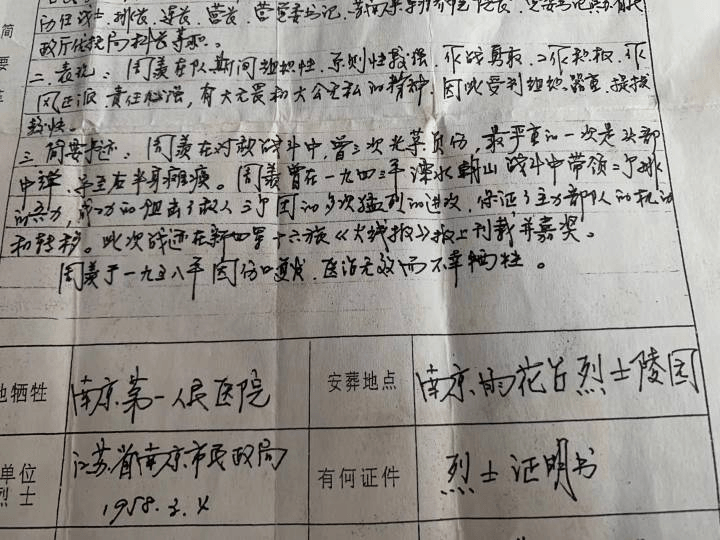 简
历任战士、排长、连长、营长、营党委书记、
政厅优抚局科长等职。
要
二、表现：周义在队期间组织性、原则性较强，作战勇敢，工作积极，作
风正派，责任心强，有大无畏和大公无私的精神，因此受到组织器重，提拔
较快。
三、简要事迹：周义在对敌战斗中，曾三次光荣负伤，最严重的一次是头部
中弹，导至右半身瘫痪。周义曾在一九四三年溧水 山战斗中带领二个排
的兵力，成功的阻击了敌人三个团的多次猛烈的进攻，保证了主力部队的机动
和转移。此次战迹在新四军十六旅《火线报》报上刊载并嘉奖。
周义于一九五八年因伤口复发，医治无效而不幸牺牲。
地牺牲
南京第一人民医院
安葬地点
南京雨花台烈士陵园
单位
烈士
江苏省南京市民政局
1958.3.4
有何证件
烈士证明书